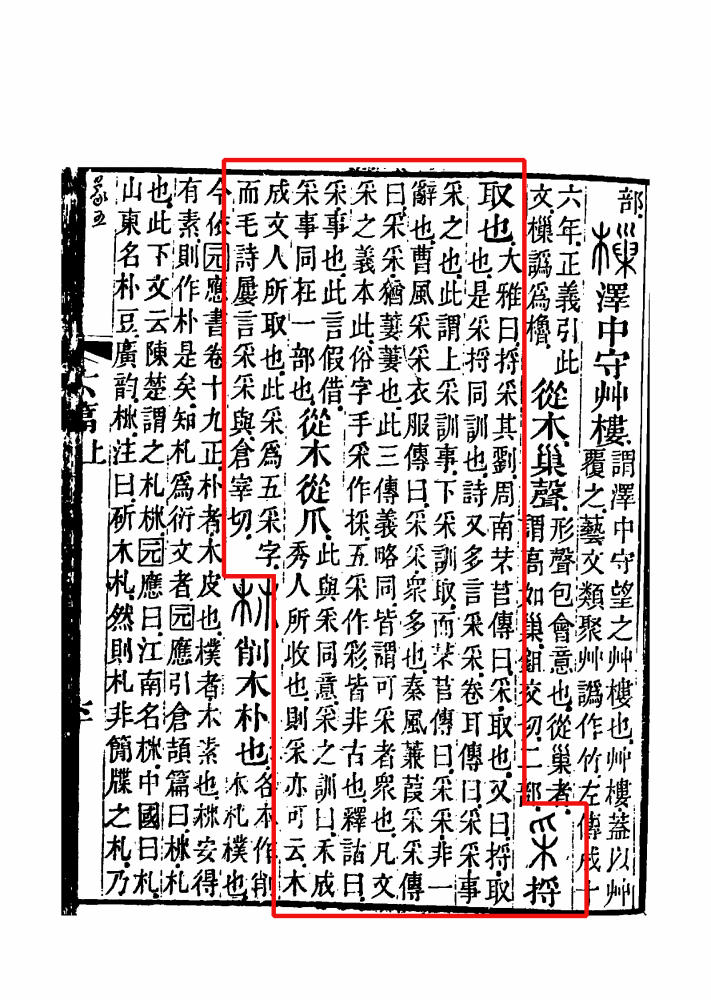 部。樔澤中守艸樓。謂澤中守望之艸樓也。艸樓蓋以艸
覆之。藝文類聚艸譌作竹。左傳成十
六年正義引此
文樔譌爲櫓。從木巢聲。形聲包會意也。從巢者、
謂高如巢。鉏交切。二部。采捋
取也。大雅曰。捋采其劉。周南芣苢傳曰。采、取也。又曰。捋、取
也。是采捋同訓也。詩又多言采采。卷耳傳曰。采采、事
采之也。此謂上采訓事。下采訓取。而芣苢傳曰。采采、非一
辭也。曹風采采衣服傳曰。采采、衆多也。秦風蒹葭采采傳
曰。采采猶萋萋也。此三傳義略同。皆謂可采者衆也。凡文
采之義本此。俗字手采作採。五采作彩。皆非古也。釋詁曰。
采、事也。此言假借。
采事同在一部也。從木從爪。此與采同意。采之訓曰。禾成
秀人所收也。則采亦可云木
成文人所取也。此采爲五采字。
而毛詩屢言采采。與倉宰切。柹削木朴也。各本作削
木札樸也。
今依元應書卷十九正。朴者、木皮也。樸者、木素也。柹安得
有素。則作朴是矣。知札爲衍文者、元應引倉頡篇曰。柹、札
也。此下文云陳楚謂之札柹。元應曰。江南名柹。中國曰札。
山東名朴豆。廣韵柹注曰。斫木札。然則札非簡牒之札。乃
六篇上